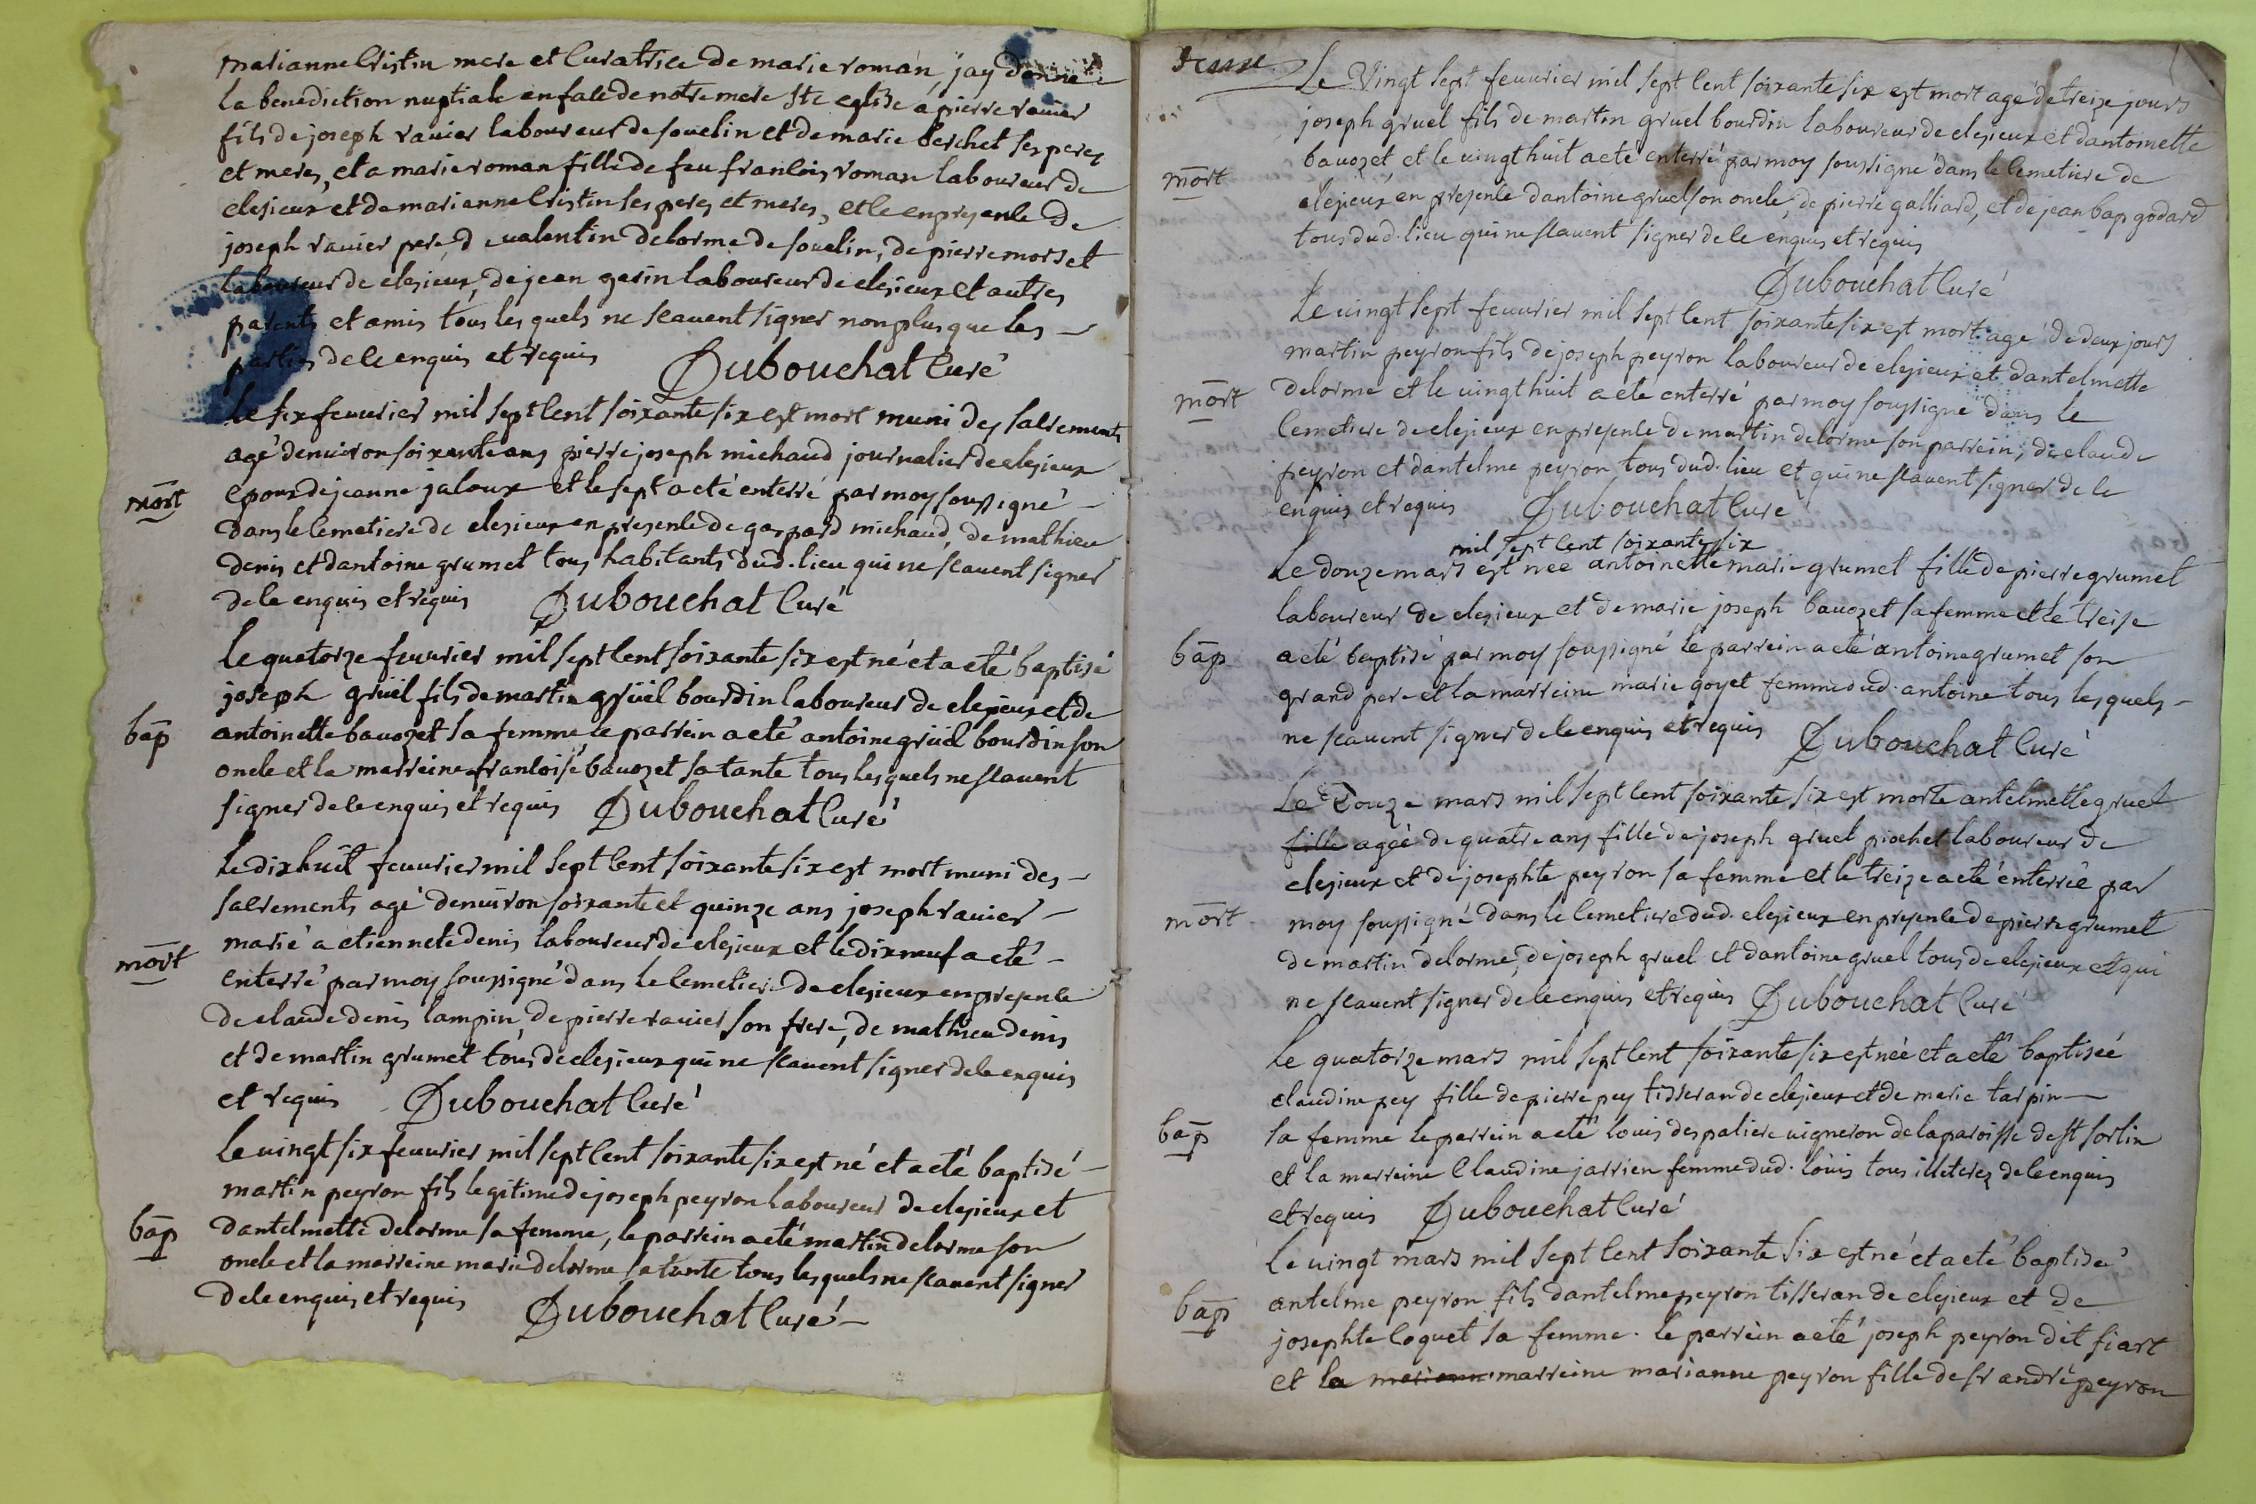 marianne Cristin mere et Curatrice de marie roman jay donné
la benediction nuptiale en face de notre mere Ste eglise a pierre ravier
fils de joseph ravier laboureur de souclin et de marie berchet ses peres
et meres, et a marie roman fille de feu francois roman laboureur de
clesieux et de marianne Cristin ses peres et meres, et ce en presence de
joseph ravier pere, d e valentin delorme de souclin, de pierre morset
laboureur de clesieux, de jean gerin laboureur de clesieux et autres
parents et amis tous les quels ne scavent signer non plus que les
parties de ce enquis et requis Dubouchat Curé
Le six fevurier mil sept cent soixante six est mort muni des sacrements
agé denviron soixante ans pierre joseph michaud journalier de clesieux
mort epoux de jeanne jaloux et le sept a eté enterré par moy soussigné
dans le Cemetiere de clesieux en presence de gaspard michaud, de mathieu
denis et dantoine grumet tous habitants dud. lieu qui ne scavent signer
de ce enquis et requis Dubouchat Curé
Le quatorze fevurier mil sept cent soixante six est né et a eté baptisé
joseph grüel fils de martin grüel bourdin laboureur de clesieux et de
bap antoinette bavozet sa femme le parrein a eté antoine grüel bourdin son
oncle et la marreine francoise bavozet sa tante tous les quels ne scavent
signer de ce enquis et requis Dubouchat Curé
Le dixhuit fevurier mil sept cent soixante six est mort muni des
sacrements agé denviron soixante et quinze ans joseph ravier
marié a etiennete denis laboureur de clesieux et le dix neuf a eté
mort enterré par moy soussigné dans le Cemetiere de clesieux en presence
de claude denis lampin, de pierre ravier son frere, de mathieu denis
et de martin grumet tous de clesieux qui ne scavent signer de ce enquis
et requis Dubouchat Curé
Le vingt six fevurier mil sept cent soixante six est né et a eté baptisé
martin peyron fils legitime de joseph peyron laboureur de clesieux et
bap dantelmette delorme sa femme, le parrein a eté martin delorme son
oncle et la marreine marie delorme sa tante tous les quels ne scavent signer
de ce enquis et requis Dubouchat Curé
Le Vingt sept fevurier mil sept cent soixante six est mort agé de treize jours
joseph gruel fils de martin gruel bourdin laboureur de clesieux et dantoinette
mort bavozet et le vingt huit a eté enterré par moy soussigné dans le Cemetiere de
clesieux en presence dantoine gruel son oncle, de pierre galliard, et de jean bap godard
tous dud. lieu qui ne scavent signer de ce enquis et requis
Dubouchat Curé
Le vingt sept fevurier mil sept cent soixante six est mort agé de deux jours
martin peyron fils de joseph peyron laboureur de clesieux et dantelmette
mort delorme et le vingt huit a eté enterré par moy soussigné dans le
Cemetiere de clesieux en presence de martin delorme son parrein, de claude
peyron et dantelme peyron tous dud. lieu et qui ne scavent signer de ce
enquis et requis Dubouchat Curé
mil sept cent soixante six
Le douze mars est née antoinette marie grumet fille de pierre grumet
laboureur de clesieux et de marie joseph bavozet sa femme et le treise
bap a eté baptisé par moy soussigné le parrein a eté antoine grumet son
grand pere et la marreine marie goyet femme dud. antoine tous les quels
ne scavent signer de ce enquis et requis Dubouchat Curé
Le Douze mars mil sept cent soixante six est morte antelmette gruel
fille agée de quatre ans fille de joseph gruel piochet laboureur de
clesieux et de josephte peyron sa femme et le treize a eté enterreé par
mort moy soussigné dans le Cemetiere dud. clesieux en presence de pierre grumet
de martin delorme, de joseph gruel et dantoine gruel tous de clesieux et qui
ne scavent signer de ce enquis et requis Dubouchat Curé
Le quatorze mars mil sept cent soixante six est née et a eté baptiseé
claudine pey fille de pierre pey tisseran de clesieux et de marie tarpin
bap sa femme le parrein a eté louis despaliere vigneron de la paroisse de St Sorlin
et la marreine Claudine jarrien femme dud. louis tous illeterez de ce enquis
et requis Dubouchat Curé
Le vingt mars mil sept cent soixante six est né et a eté baptisé
bap antelme peyron fils dantelme peyron tisseran de clesieux et de
josephte Coquet sa femme. le parrein a eté joseph peyron dit fiart
et la marianne marreine marianne peyron fille de sr andré peyron